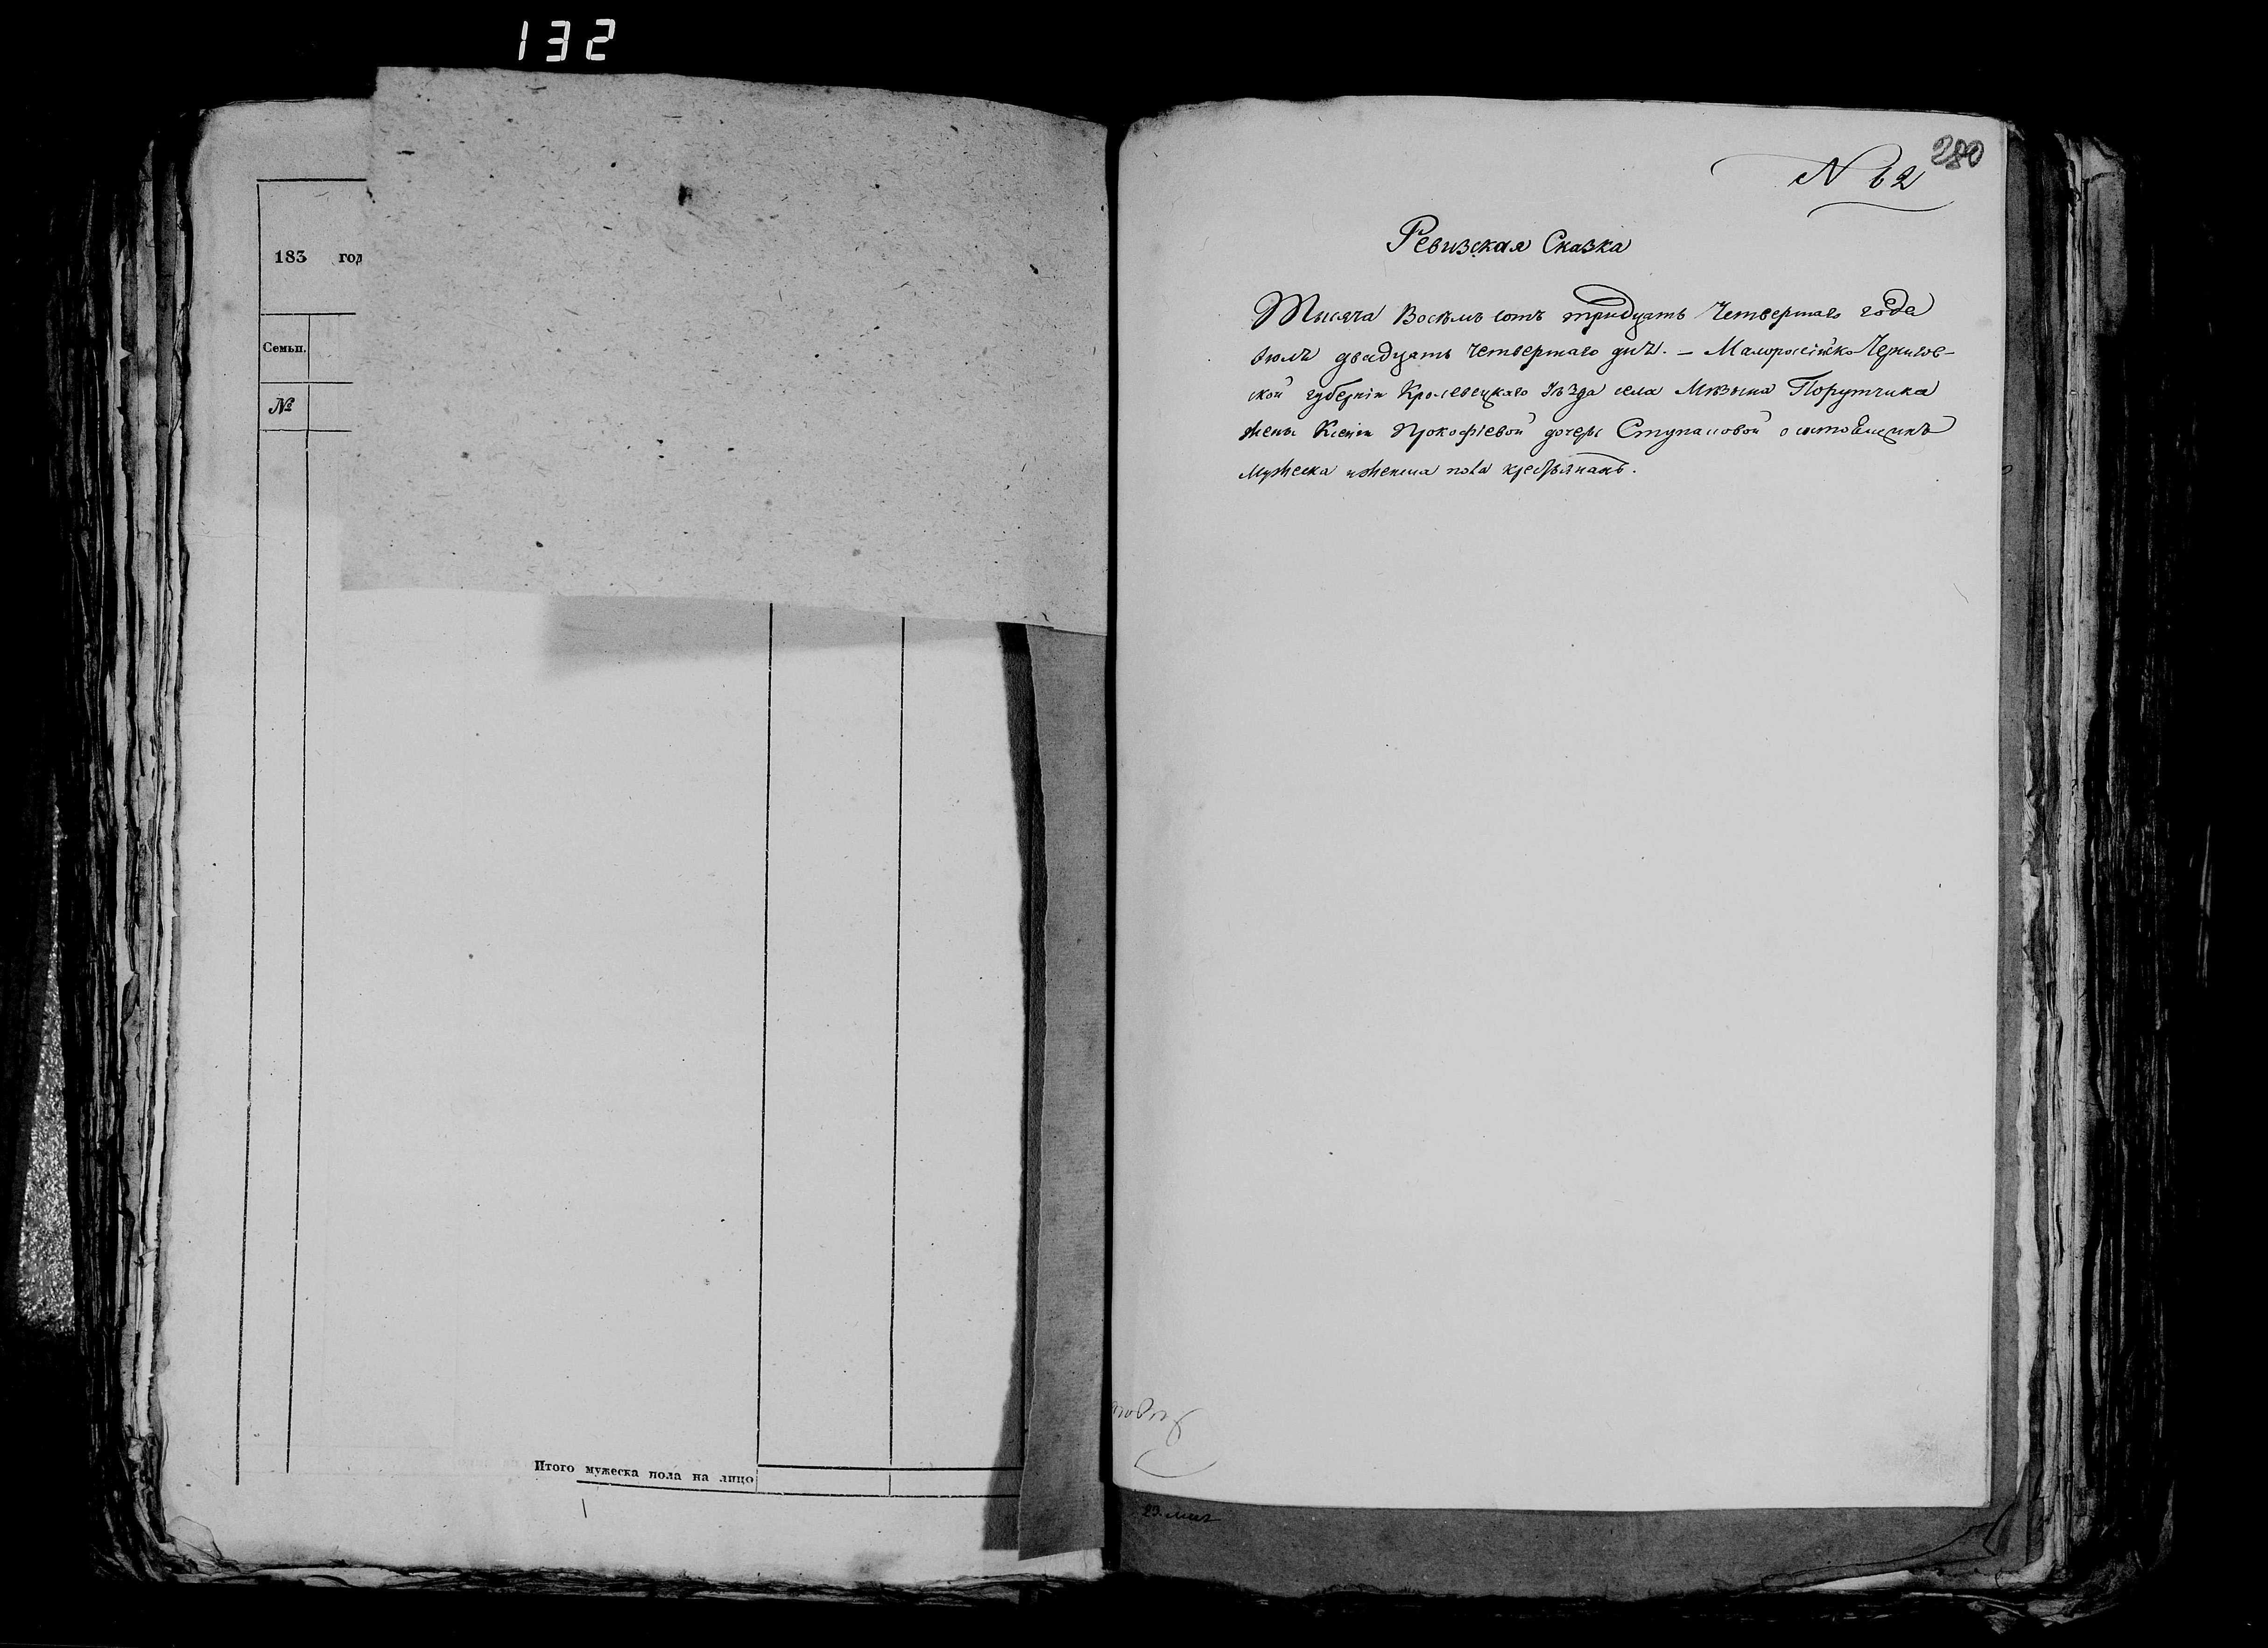 132
183 год
Семьи.
№
Итого мужеска пола на лицо
280
N 62
Ревизская Сказка
Тысяча Восемь сотъ тридцать Четвертаго года
двадцать четвертаго дня. — Малоросійско Чернигов-
ской губерніи Кролевецкаго уѣзда села Мѣзына Порутчика
жены Ксеніи Прокофіевой дочери Ступаковой о состоящихъ
мужеска и женска пола крестьянахъ.